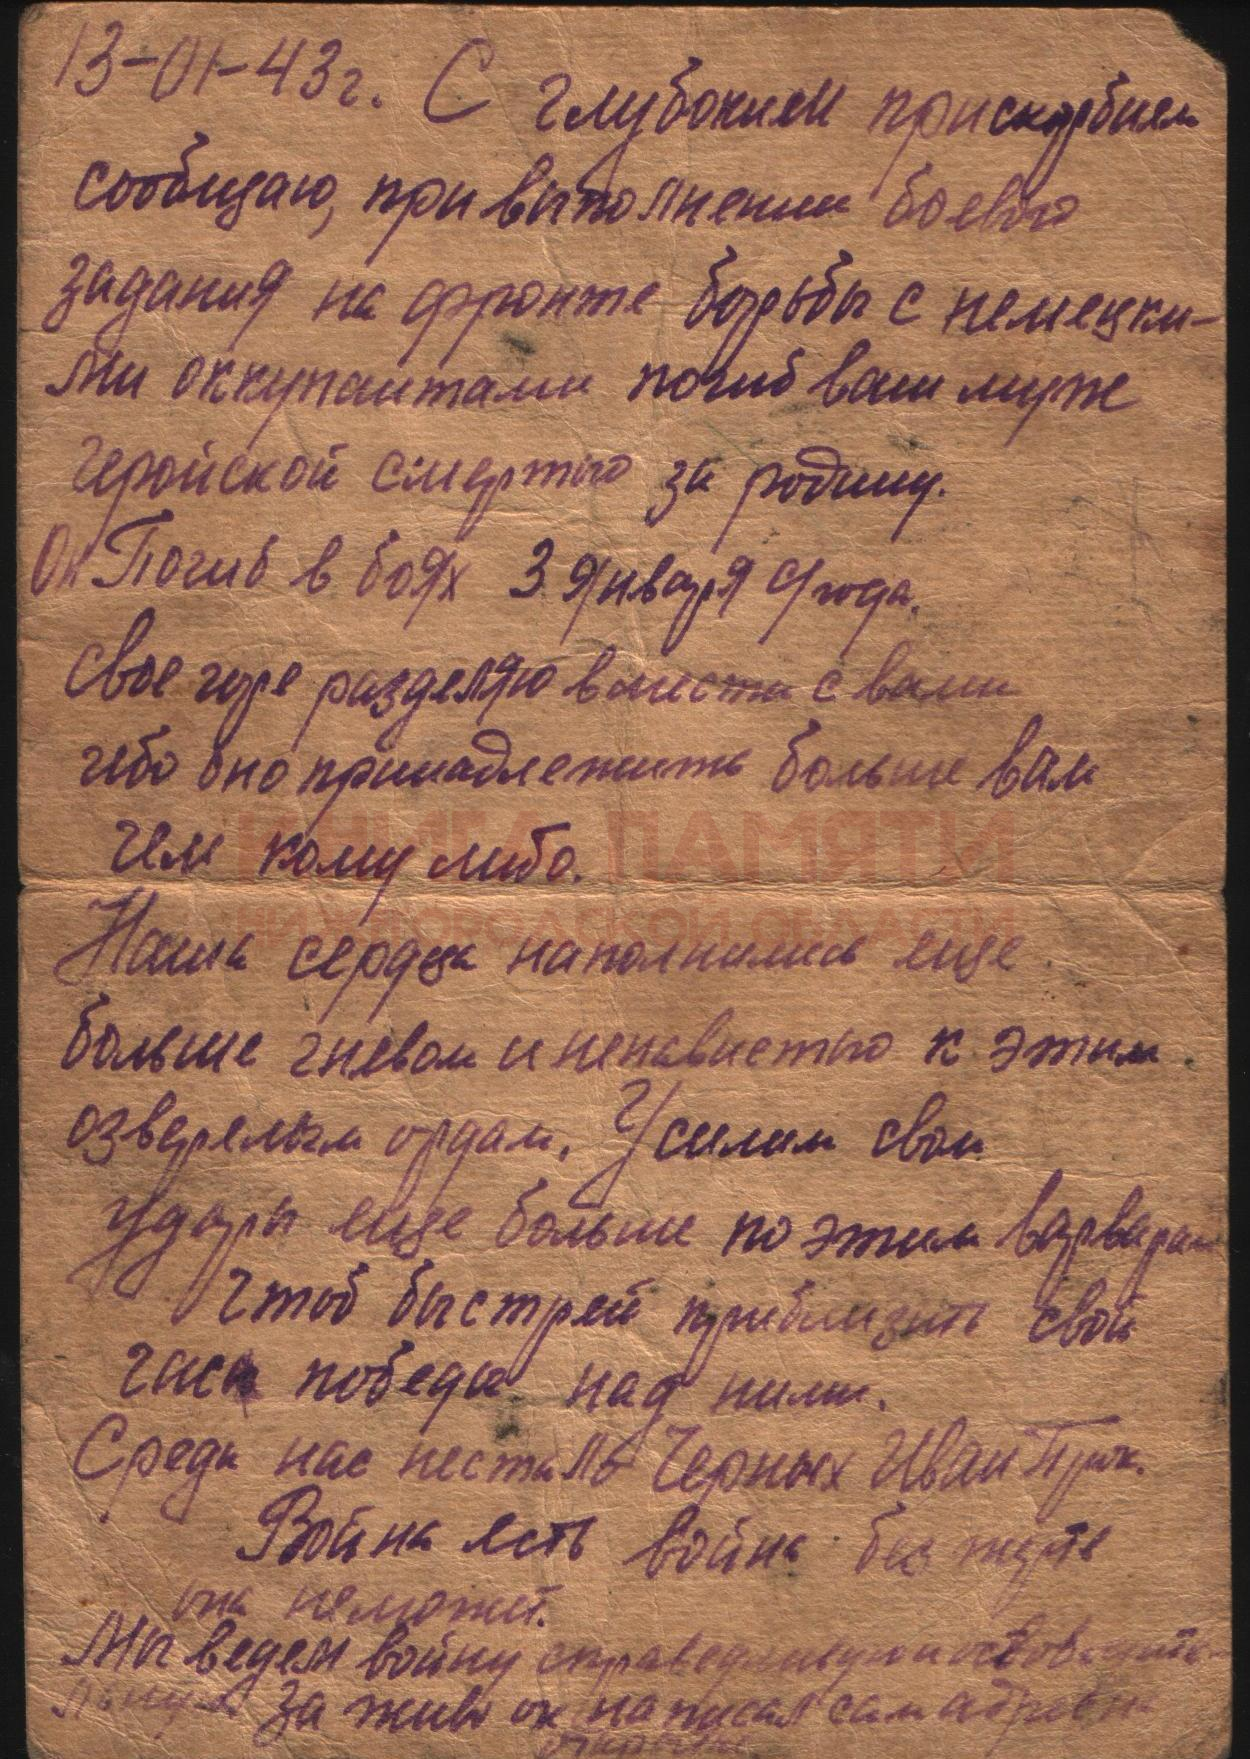 13-01-43г. С глубоким прискорбием
сообщаю, при выполнении боевого
задания на фронте борьбы с немецки-
ми оккупантами погиб ваш муж
геройской смертью за родину.
Он Погиб в боях 3 января 4 года.
Свое горе разделяю вместе с вами
ибо оно принадлежить больше вам
чем кому либо.
КНИГА ПАМЯТИ
НИЖЕГОРОДСКОЙ ОБЛАСТИ
Наша сердца наполнились еще
больше гневом и ненавистью к этим
озверелым ордам. Усилим свои
удары еще больше по этим варварам
Чтоб быстрей приблизить свой
час победы над ними.
Среди нас нестало Черных Иван
Война есть война без жертв
она неможет.
Мы ведем войну справедливую и освободите-
льную За живо он написал сам адрес на